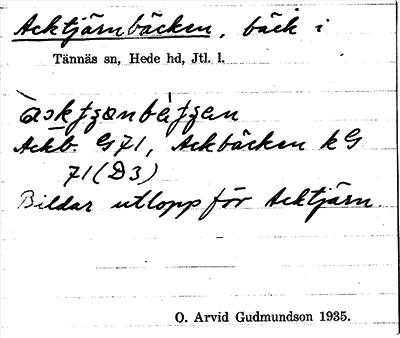 Acktjärnbäcken, bäck i
Tännäs sn, Hede hd, Jtl. l.
Ackb. G71, Ackbäcken kG
71 (D3)
Bildar utlopp för Acktjärn.
O. Arvid Gudmundson 1935.